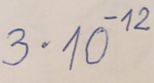 3 · 10⁻¹²